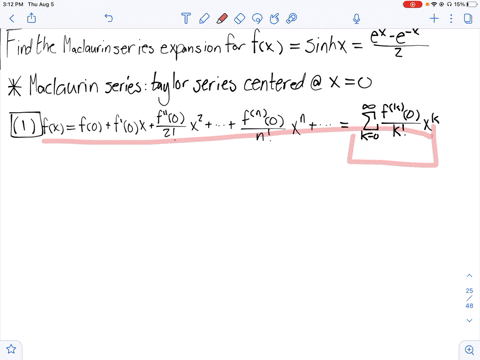 3:12 PM Thu Aug 5
15%
Find the Maclaurin series expansion for f(x) = sinhx = (e^x - e^-x)/2
* Maclaurin series: taylor series centered @ x=0
(1) f(x) = f(0) + f'(0)x + f''(0)/2! x^2 + ... + f^(n)(0)/n! x^n + ... = ∑_{k=0}^{∞} f^(k)(0)/k! x^k
25
/
48